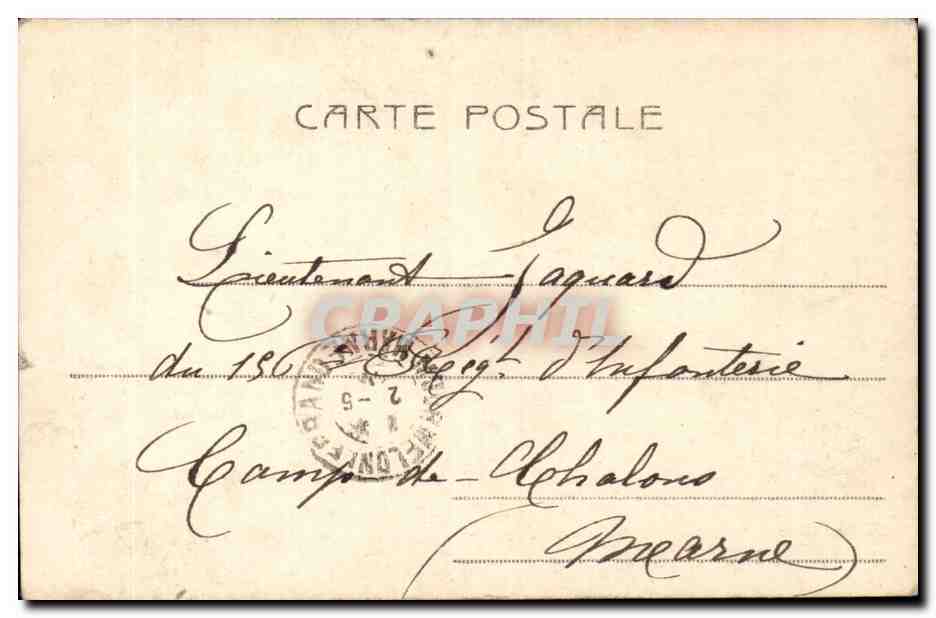 CARTE POSTALE
Lieutenant Jaquard
CRAPHIL
du 156e Regt d'Infanterie
2 - 5
Camp-de-Chalons
(Marne)